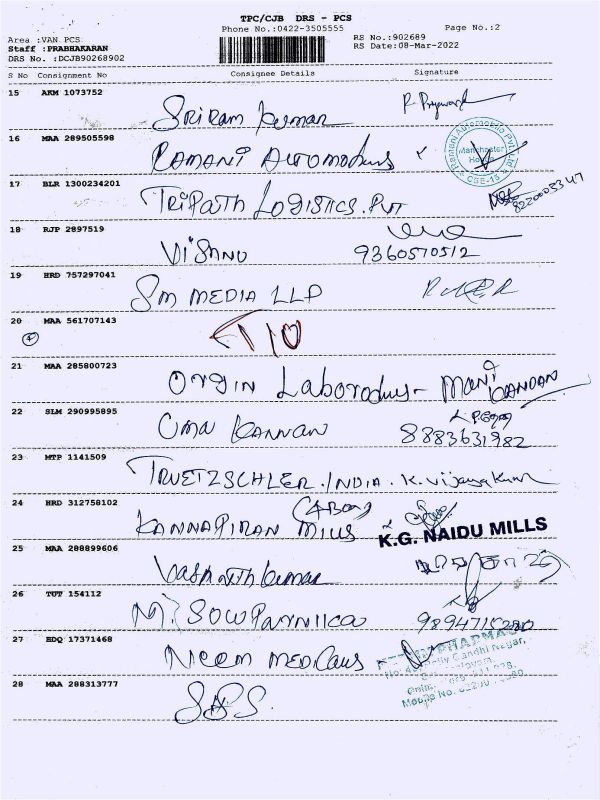 TPC/CJB DRS - PCS
Phone No.:0422-3505555
Page No.:2
Area :VAN PCS
RS No.:902689
Staff :PRABHAKARAN
RS Date:08-Mar-2022
DRS No. :DCJB90268902
S No Consignment No Consignee Details Signature
15 AKM 1073752
Sriram kumar
16 MAA 289505598
RAMANI AUTOMOTIVES
Ramani Automobile Pvt Ltd
Manchester
CBE-15
17 BLR 1300234201
TRIPATH LOGISTICS.PVT
8220003347
18 RJP 2897519
VISHNU 9360570512
19 HRD 757297041
SM MEDIA LLP
20 MAA 561707143
21 MAA 285800723
Origin Laboratory - MANIKANDAN
22 SLM 290995895
UMA KANNAN 8883631982
23 MTP 1141509
TRUETZSCHLER.INDIA. K. Vijayakumar
24 HRD 312758102
(4 Box)
KANNAPIRAN MILLS
K.G. NAIDU MILLS
25 MAA 288899606
Vasanth kumar
26 TUT 154112
M. SOWPARNIKA
27 HDQ 17371468
Neem MEDICALS
PHARMA
Gandhi Nagar,
Mobile No.
28 MAA 288313777
SBS.